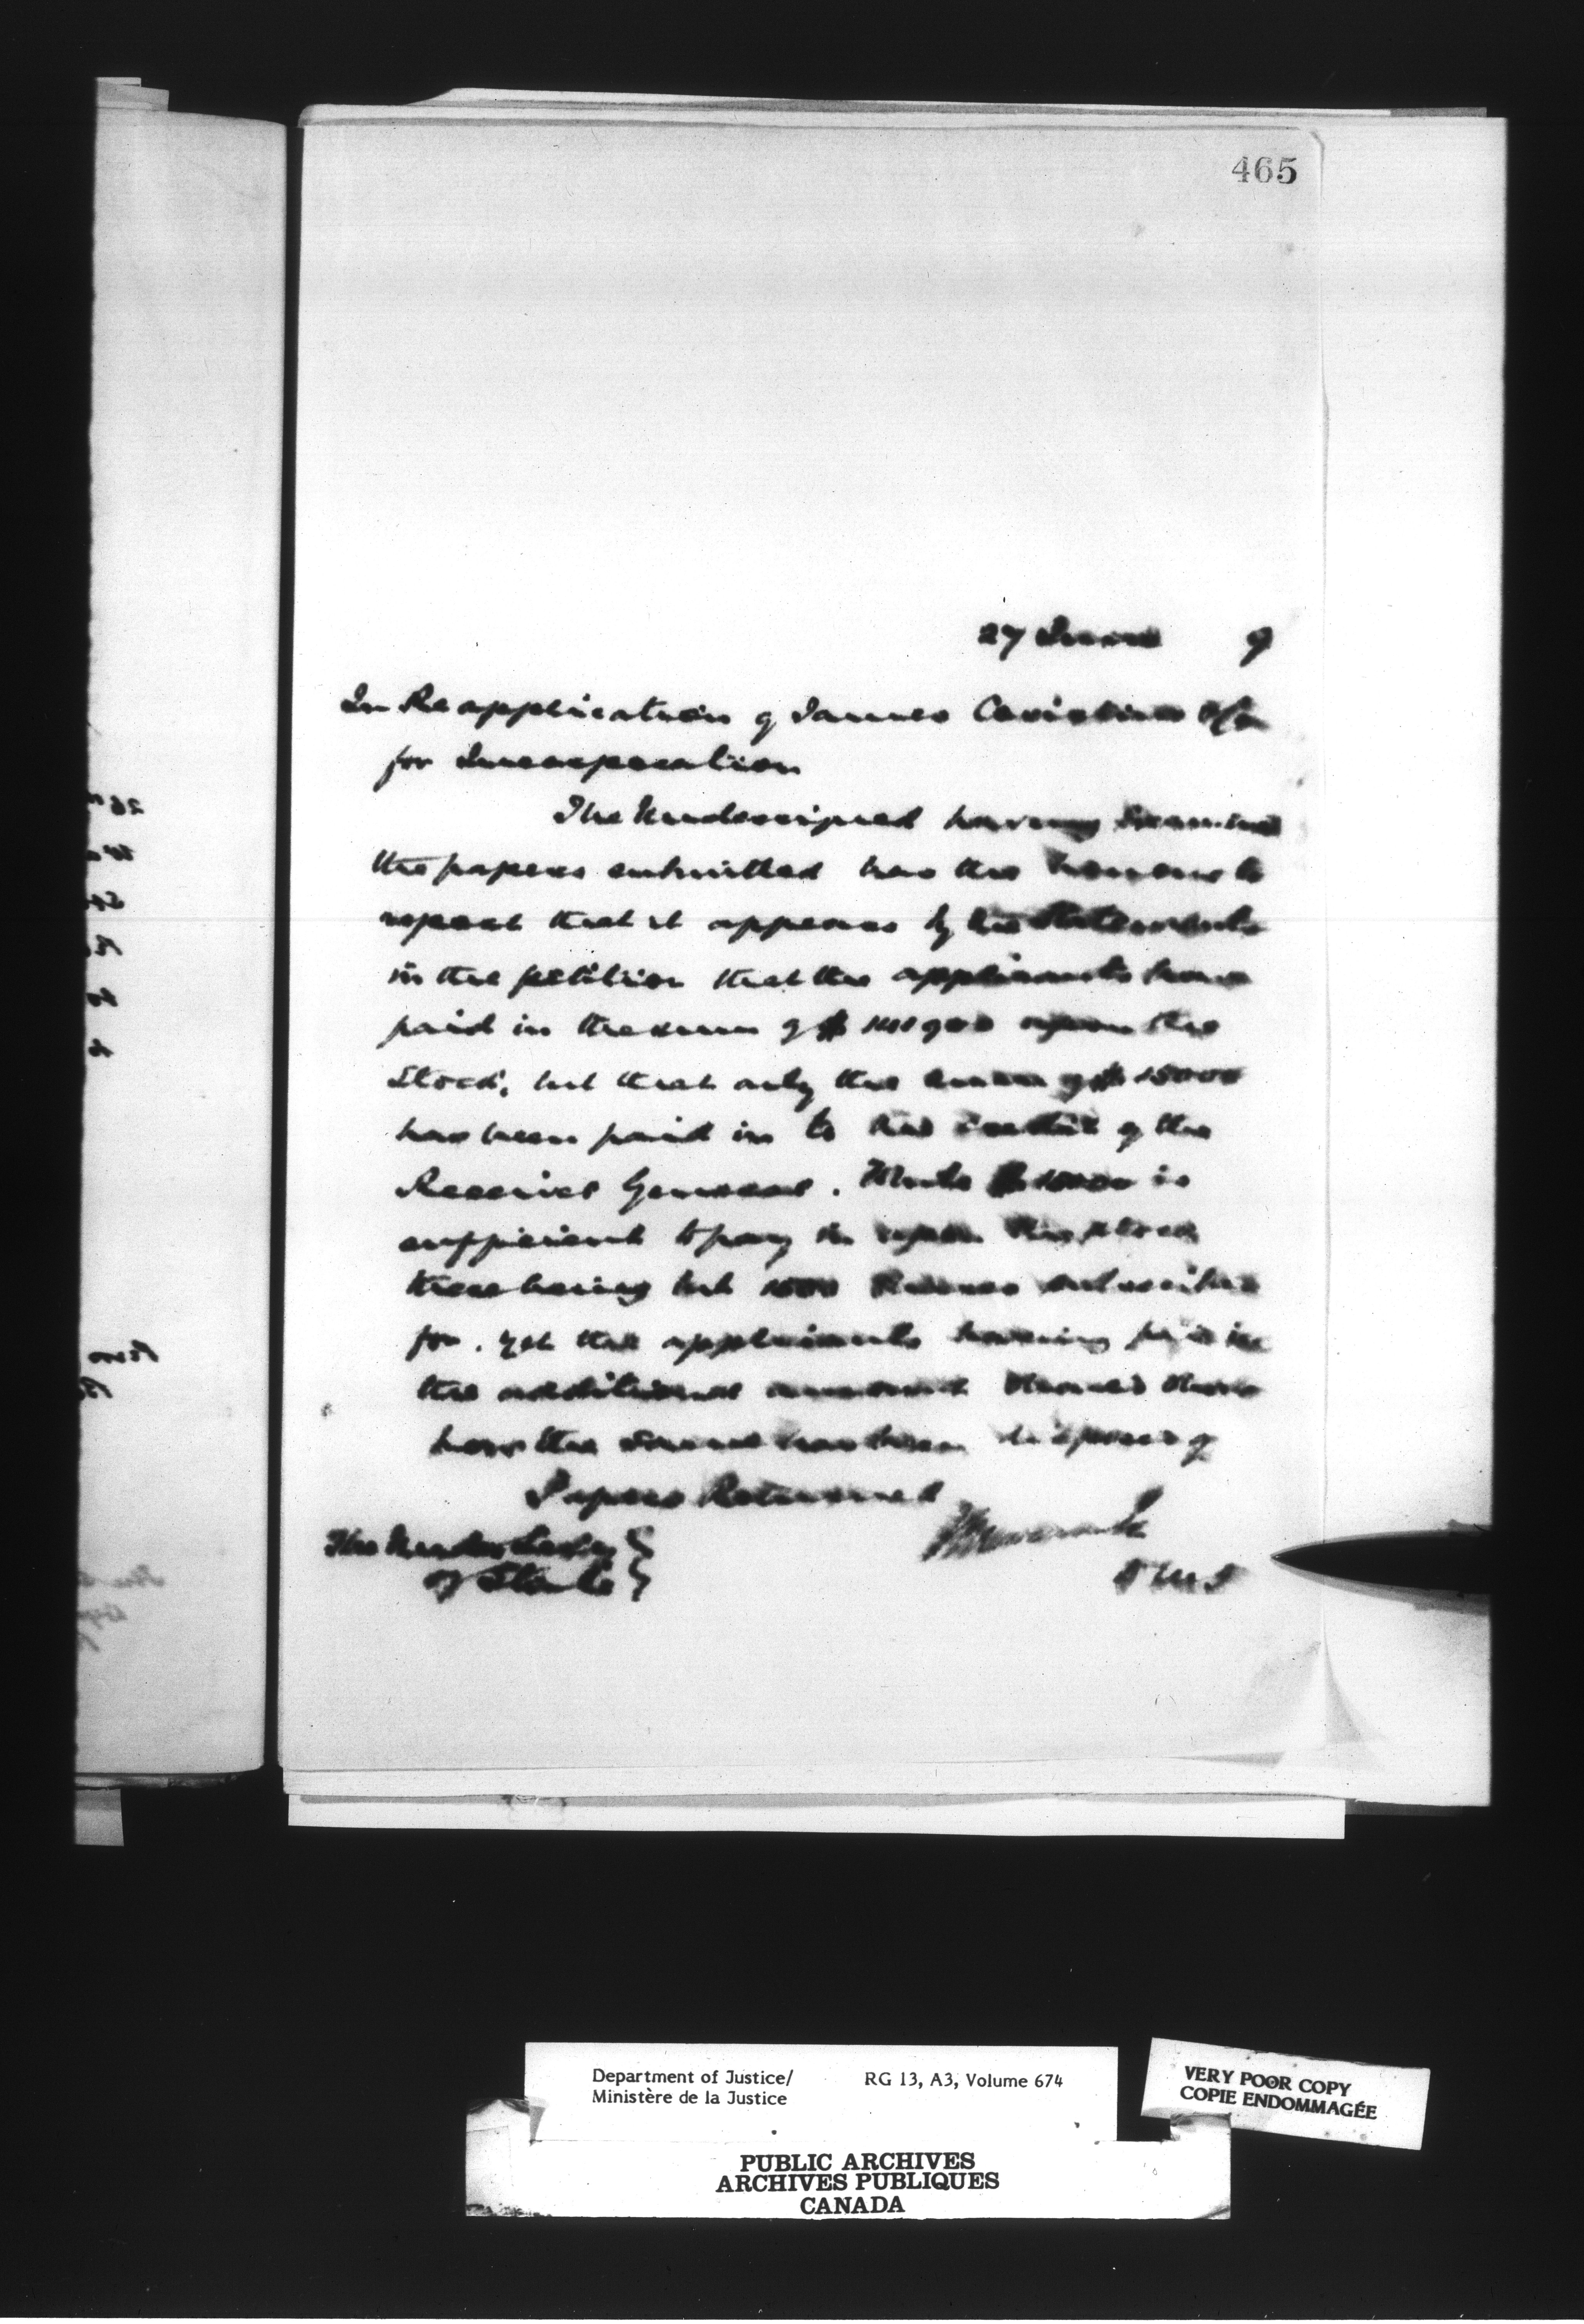 465
27 June 9
In Re application of James
for Incorporation
The Undersigned having examined
the papers submitted has the honor to
report that it appears by the statements
in the petition that the applicants have
paid in the sum of $ upon the
Stock, but that only the sum of $
has been paid in to the credit of the
Receiver General. While $ is
sufficient to pay in upon the stock
there being but shares subscribed
for. yet the applicants having paid in
the additional amount should show
how the same has been disposed of
Papers Returned
The Under Secty
of State
Department of Justice/
Ministère de la Justice
RG 13, A3, Volume 674
VERY POOR COPY
COPIE ENDOMMAGÉE
PUBLIC ARCHIVES
ARCHIVES PUBLIQUES
CANADA